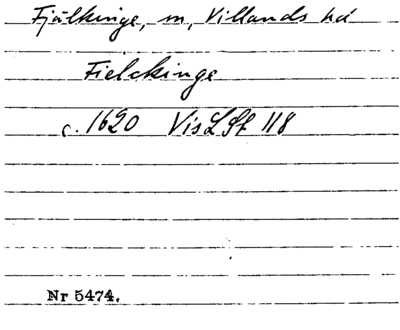 Fjälkinge, m, Villands hd
Fielckinge
c. 1620 VisLSt 118
Nr 5474.